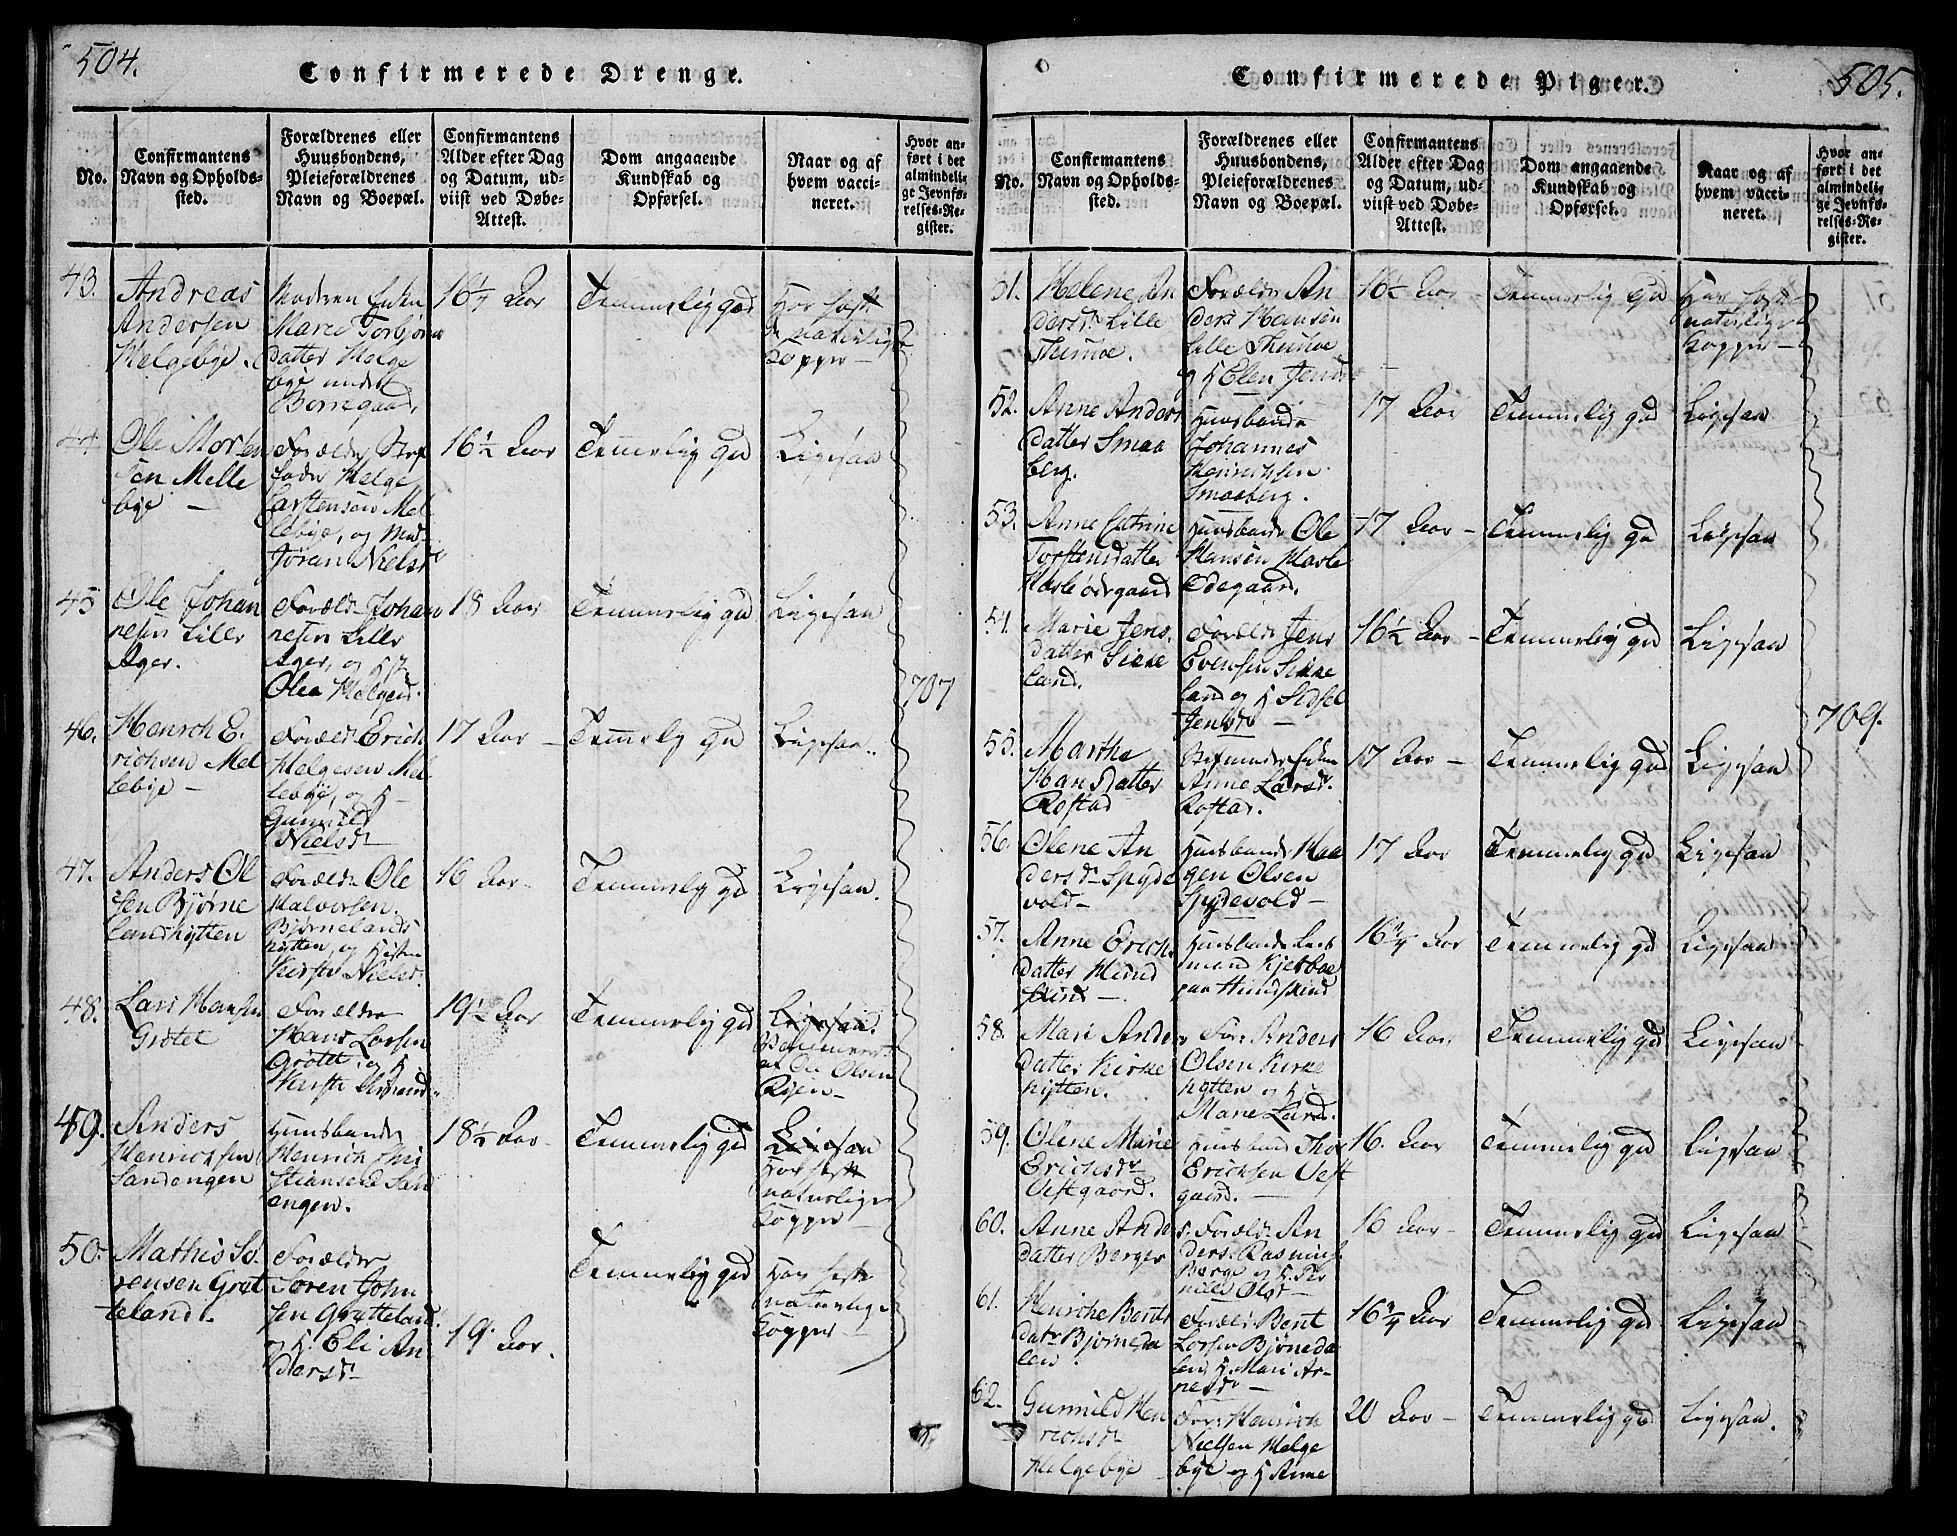 504.
Confirmerede Drenge.
No.
Confirmantens
Navn og Opholds-
sted.
Forældrenes eller
Huusbondens,
Pleieforældrenes
Navn og Boepæl.
Confirmantens
Alder efter Dag
og Datum, ud-
viist ved Døbe-
Attest.
Dom angaaende
Kundskab og
Opførsel.
Naar og af
hvem vacci-
neret.
Hvor an-
ført i det
almindeli-
ge Jevnfø-
relses-Re-
gister.
43.
Andreas
Andersen
Helgebye.
Marie Torbjørn
datter Helge
bye
Borregaard,
Aar
Temmerlig god
Har hafft
naturlige
Kopper
44.
Ole Morten
sen Melle
bye
Helge
Carstensen Mel
lebye, og
Jøran Nielsdr
16½ Aar
Temerlig gd
Ligesaa
45
Ole Johan
nesen Lille
Ager.
Foræld: Johan
nesen Lille
Ager, og
Olea
18 Aar
Temmerlig gd
Ligesaa
707
46.
Henrich E.
richsen Mel
lebye
Foræld: Erich
Helgesen Mel
lebye, og H
Gunnild
Nielsdr
17 Aar
Temerlig gd
Ligesaa
47.
Anders Ol
sen Bjørne
landhytten
Foræld: Ole
Halversen
Bjørnelands
hytten, og
Kirstie Nielsd.
16 Aar
Temmerlig gd
Ligesaa.
48.
Lars Hansen
Grøtet
Forældre
Hans Larsen
Grøtet og H
19½ Aar
Temmerlig gd
Ligesaa.
af Ole Olsen
49.
Anders
Henrichsen
Sandengen
Huusbonde
Henrich Chri
stiansen San
engen.
18½ Aar
Temmerlig gd
Ligesaa
Har hafft
naturlige
Kopper
50.
Mathis Sø
rensen Grøt
teland.
Forældre
Søren John
sen Grøtteland.
og H. Eli An
dersdr
19. Aar.
Temmerlig gd
Har hafft
naturlige
Kopper
505.
Confirmerede Piger.
No.
Confirmantens
Navn og Opholds-
sted.
Forældrenes eller
Huusbondens,
Pleieforældrenes
Navn og Boepæl.
Confirmantens
Alder efter Dag
og Datum, ud-
viist ved Døbe-
Attest.
Dom angaaende
Kundskab og
Opførsel.
Naar og af
hvem vacci-
neret.
Hvor an-
ført i det
almindeli-
ge Jevnfø-
relses-Re-
gister.
51.
Helene An
dersdr Lille
Foræld: An
ders Hansen
Lille
og H Elen Jensd
16½ Aar
Temmerlig Gd
Har hafft
naturlige
Kopper
52.
Anne Anders
datter Smaa
berg.
Huusbonde
Johannes
Henrichsen
Smaaberg.
17 Aar
Temmerlig gd
Ligesaa
53.
Anne Catrine
Torstensdatter
Hasleødegaard
Huusbonde Ole
Hansen Hasle
Ødegaard.
17 Aar
Temmerlig gd
Ligesaa
54.
Marie Jens
datter Sikke
land.
Foræld: Jens
Evensen Sikke
land og H Sidsel
Jensdr
16½ Aar
Temmerlig gd
Ligesaa
709.
55.
Marthe
Hansdatter
Rostad
Anne Larsdr
Rostad.
17 Aar
Temmerlig gd
Ligesaa
56.
Olene An
dersdr Spyde
vold
Huusbonde Haa
gen Olsen
Spydevold
17 Aar
Temmerlig gd
Ligesaa
57.
Anne Erichs
datter Hund
skind
Huusbonde
paa Hundskind
16¾ Aar
Temmerlig gd
Ligesaa
58.
Mari Anders
datter Kirke
hytten.
For: Anders
Olsen Kirke
hytten og H.
Marie Larsd.
16 Aar
Temmerlig gd
Ligesaa
59.
Olene Marie
Erichsdr
Vestgaard.
Huusbond Thor
Erichsen Vest
gaard.
16. Aar
Temmerlig gd
Ligesaa
60.
Anne Ander
datter Berger
Foræld: An
ders Rasmus
Berge og H. Per
nille Olsdr
16 Aar
Temmerlig gd
Ligesaa
61.
Henriche Bents
datr Bjørneda
len
Foræld: Bent
Larsen Bjørneda
len, H. Mari Ar-
nesdr
16¾ Aar
Temmerlig gd
Ligesaa
62.
Gunnild Hen
richsdr
Helgebye
For: Henrich
Nielsen Helge
bye og H Anne
20 Aar
Temmerlig gd
Ligesaa.